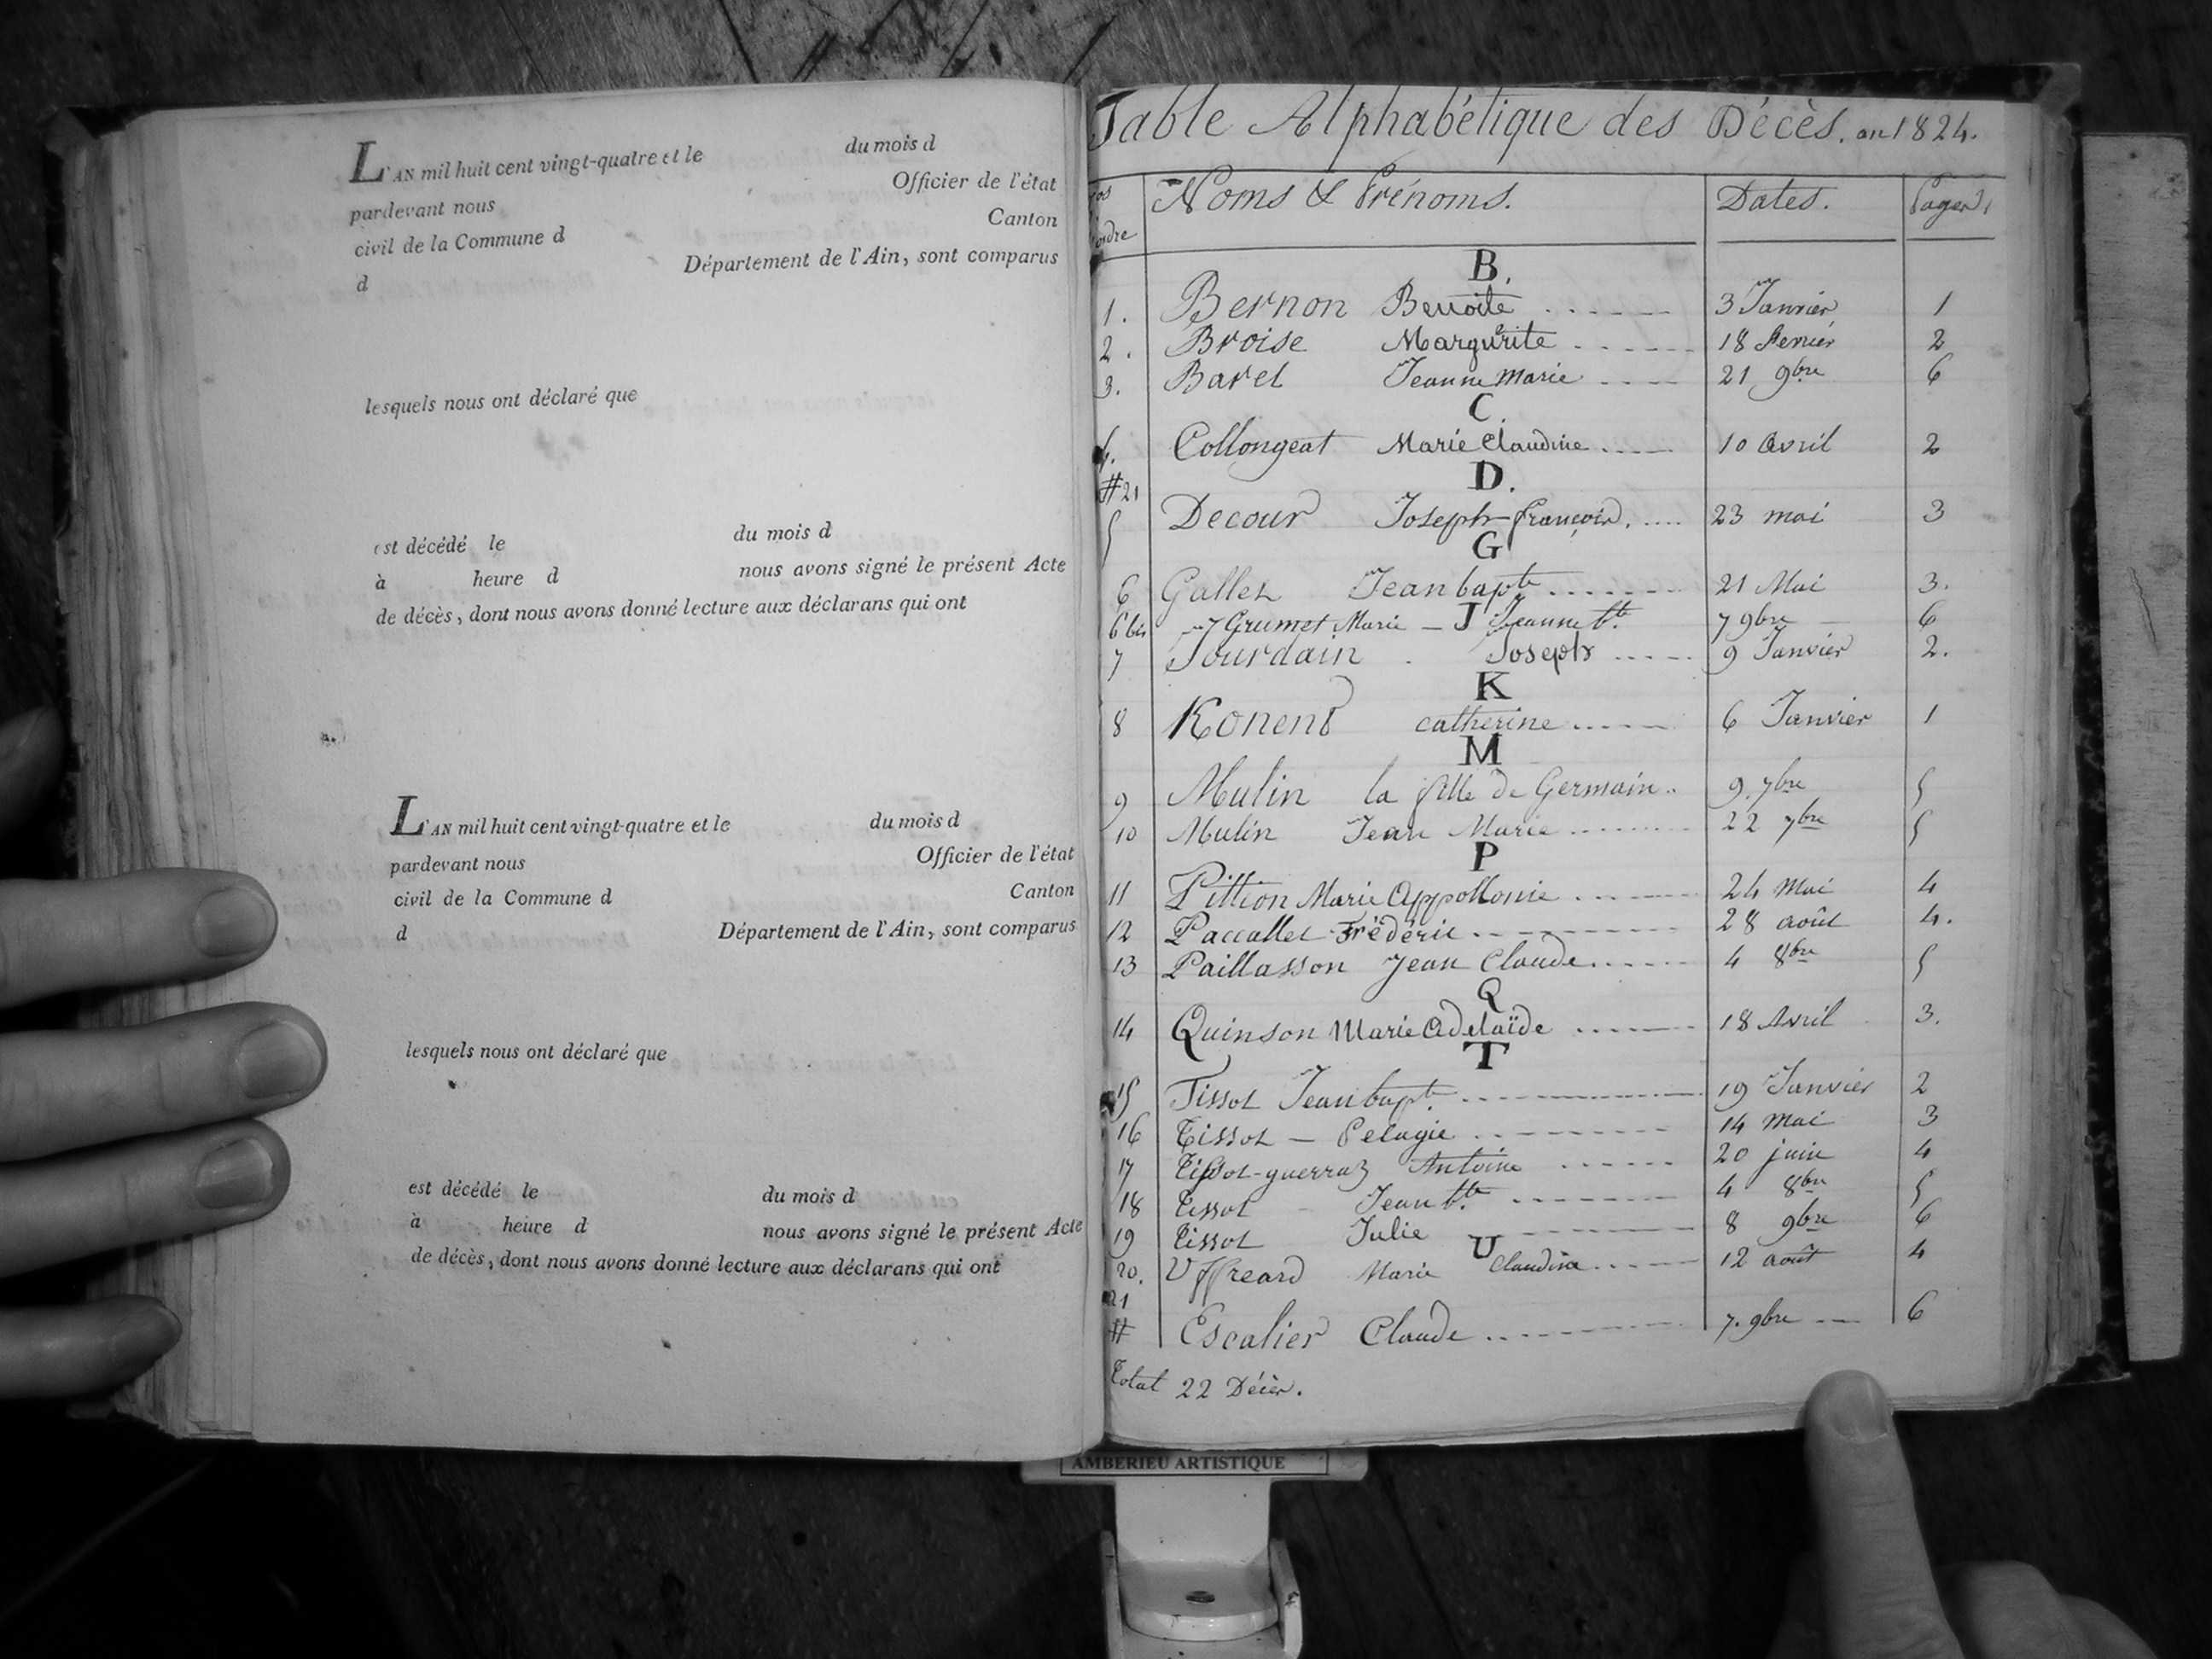 L'AN mil huit cent vingt-quatre et le du mois d
pardevant nous Officier de l'état
civil de la Commune d Canton
d Département de l'Ain, sont comparus
lesquels nous ont déclaré que
est décédé le du mois d
à heure d nous avons signé le présent Acte
de décès, dont nous avons donné lecture aux déclarans qui ont
L'AN mil huit cent vingt-quatre et le du mois d
pardevant nous Officier de l'état
civil de la Commune d Canton
d Département de l'Ain, sont comparus
lesquels nous ont déclaré que
est décédé le du mois d
à heure d nous avons signé le présent Acte
de décès, dont nous avons donné lecture aux déclarans qui ont
Table Alphabétique des Décès. an 1824.
Noms & Prénoms. Dates. Pages
B.
1. Bernon Benoite 3 Janvier 1
2. Broise Margurite 18 2
3. Baret Jeanne Marie 21 9bre 6
C.
4. Collongeat Marie Claudine 10 avril 2
#21 D.
5 Decour Joseph françois. 23 mai 3
G
6 Gallet Jean bapte 21 Mai 3.
6 bis Grumet Marie - Jeanne bte 7 9bre 6
J
7 Jourdain Joseph 9 Janvier 2.
K
8 Konend catherine 6 Janvier 1
M
9 Mulin la fille de Germain 9. 7bre 5
10 Mulin Jean Marie 22 7bre 5
P
11 Pittion Marie Appollonie 24 Mai 4
12 Paccallet Frédéric 28 août 4.
13 Paillasson Jean Claude 4 8bre 5
Q
14 Quinson Marie Adelaïde 18 Avril 3.
T
15 Tissot Jean bapte. 19 Janvier 2
16 Tissot - Pelagie 14 mai 3
17 Tissot-guerraz Antoine 20 juin 4
18 Tissot - Jean bte. 4 8bre 5
19 Tissot Julie 8 9bre 6
U
20. Uffreard Marie Claudine 12 août 4
21
# Escalier Claude 7. 9bre 6
Total 22 Décès.
AMBERIEU ARTISTIQUE